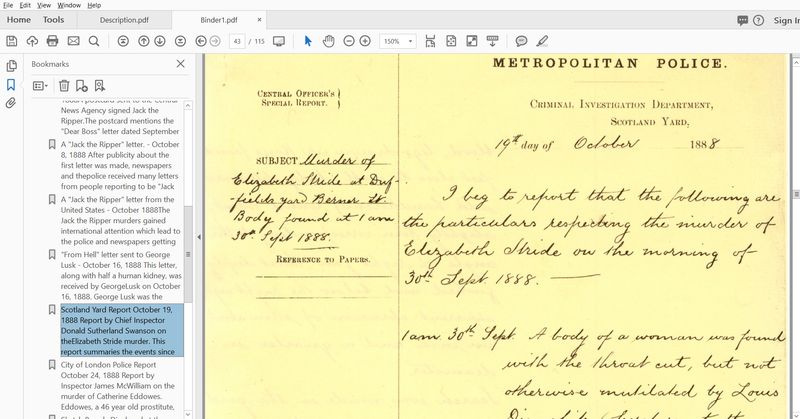 File Edit View Window Help
Home Tools Description.pdf Binder1.pdf × Sign In
43 / 115 150%
Bookmarks ×
News Agency signed Jack the
Ripper.The postcard mentions the
"Dear Boss" letter dated September
A "Jack the Ripper" letter. - October
8, 1888 After publicity about the
first letter was made, newspapers
and thepolice received many letters
from people reporting to be "Jack
A "Jack the Ripper" letter from the
United States - October 1888The
Jack the Ripper murders gained
international attention which lead to
the police and newspapers getting
"From Hell" letter sent to George
Lusk - October 16, 1888 This letter,
along with half a human kidney, was
received by GeorgeLusk on October
16, 1888. George Lusk was the
Scotland Yard Report October 19,
1888 Report by Chief Inspector
Donald Sutherland Swanson on
theElizabeth Stride murder. This
report summaries the events since
City of London Police Report
October 24, 1888 Report by
Inspector James McWilliam on the
murder of Catherine Eddowes.
Eddowes, a 46 year old prostitute,
METROPOLITAN POLICE.
CENTRAL OFFICER'S
SPECIAL REPORT.
CRIMINAL INVESTIGATION DEPARTMENT,
SCOTLAND YARD,
19th day of October 1888
SUBJECT Murder of
Elizabeth Stride at Duf-
-fields yard Berner St.
Body found at 1 am
30th Sept 1888.
REFERENCE TO PAPERS.
I beg to report that the following are
the particulars respecting the murder of
Elizabeth Stride on the morning of
30th Sept. 1888.
1 am 30th Sept. A body of a woman was found
with the throat cut, but not
otherwise mutilated by Louis